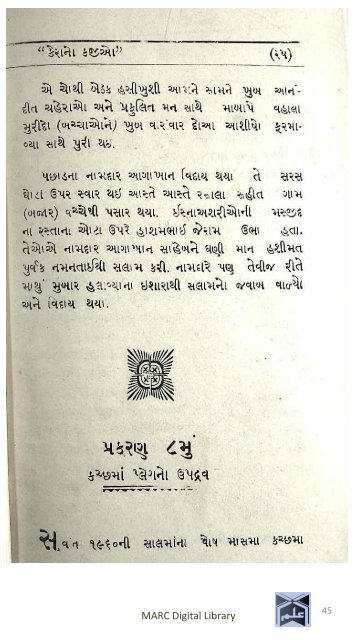 “કેરાનો કજીઓ” (૨૫)
એ ચોથી બેઠક હસીખુશી આમને સામને ખુબ આનં-
દીત ચહેરાઓ અને પ્રફુલિત મન સાથે માબાપે વહાલા
મુરીદો (બચ્ચાઓને) ખુબ વારંવાર દોઆ આશીષો ફરમા-
વ્યા સાથે પુરી થઇ.
પછાડના નામદાર આગાખાન વિદાય થયા તે સરસ
ઘોડા ઉપર સ્વાર થઇ આસ્તે આસ્તે રસાલા સહીત ગામ
(બજાર) વચ્ચેથી પસાર થયા. ઇસ્નાઅશરીઓની મસ્જીદ
ના રસ્તાના ઓટા ઉપરે હાશમભાઈ જેરામ ઉભા હતા.
તેઓએ નામદાર આગાખાન સાહેબને ઘણી માન હશીમત
પુર્વક નમનતાઈથી સલામ કરી. નામદારે પણ તેવીજ રીતે
માથું મુબારક હલાવ્યાના ઇશારાથી સલામનો જવાબ વાળ્યો
અને વિદાય થયા.
પ્રકરણ ૮મું
કચ્છમાં પ્લેગનો ઉપદ્રવ
સંવત ૧૯૬૦ની સાલમાંના પોષ માસમા કચ્છમા
MARC Digital Library
45